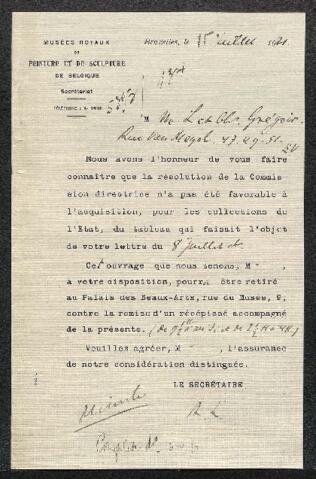 MUSÉES ROYAUX
DE
PEINTURE ET DE SCULPTURE
DE BELGIQUE
Secrétariat
Bruxelles, le 15 Juillet 1921
M Grégoir
Rue Van Meyel 47.49.51.
Nous avons l'honneur de vous faire
connaître que la résolution de la Commis-
sion directrice n'a pas été favorable à
l'acquisition, pour les collections de
l'Etat, du tableau qui faisait l'objet
de votre lettre du 8 Juillet
Cet ouvrage que nous tenons, M ,
à votre disposition, pourra être retiré
au Palais des Beaux-Arts, rue du Musée, 9,
contre la remise d'un récépissé accompagné
de la présente.
Veuillez agréer, M , l'assurance
de notre considération distinguée.
LE SECRÉTAIRE